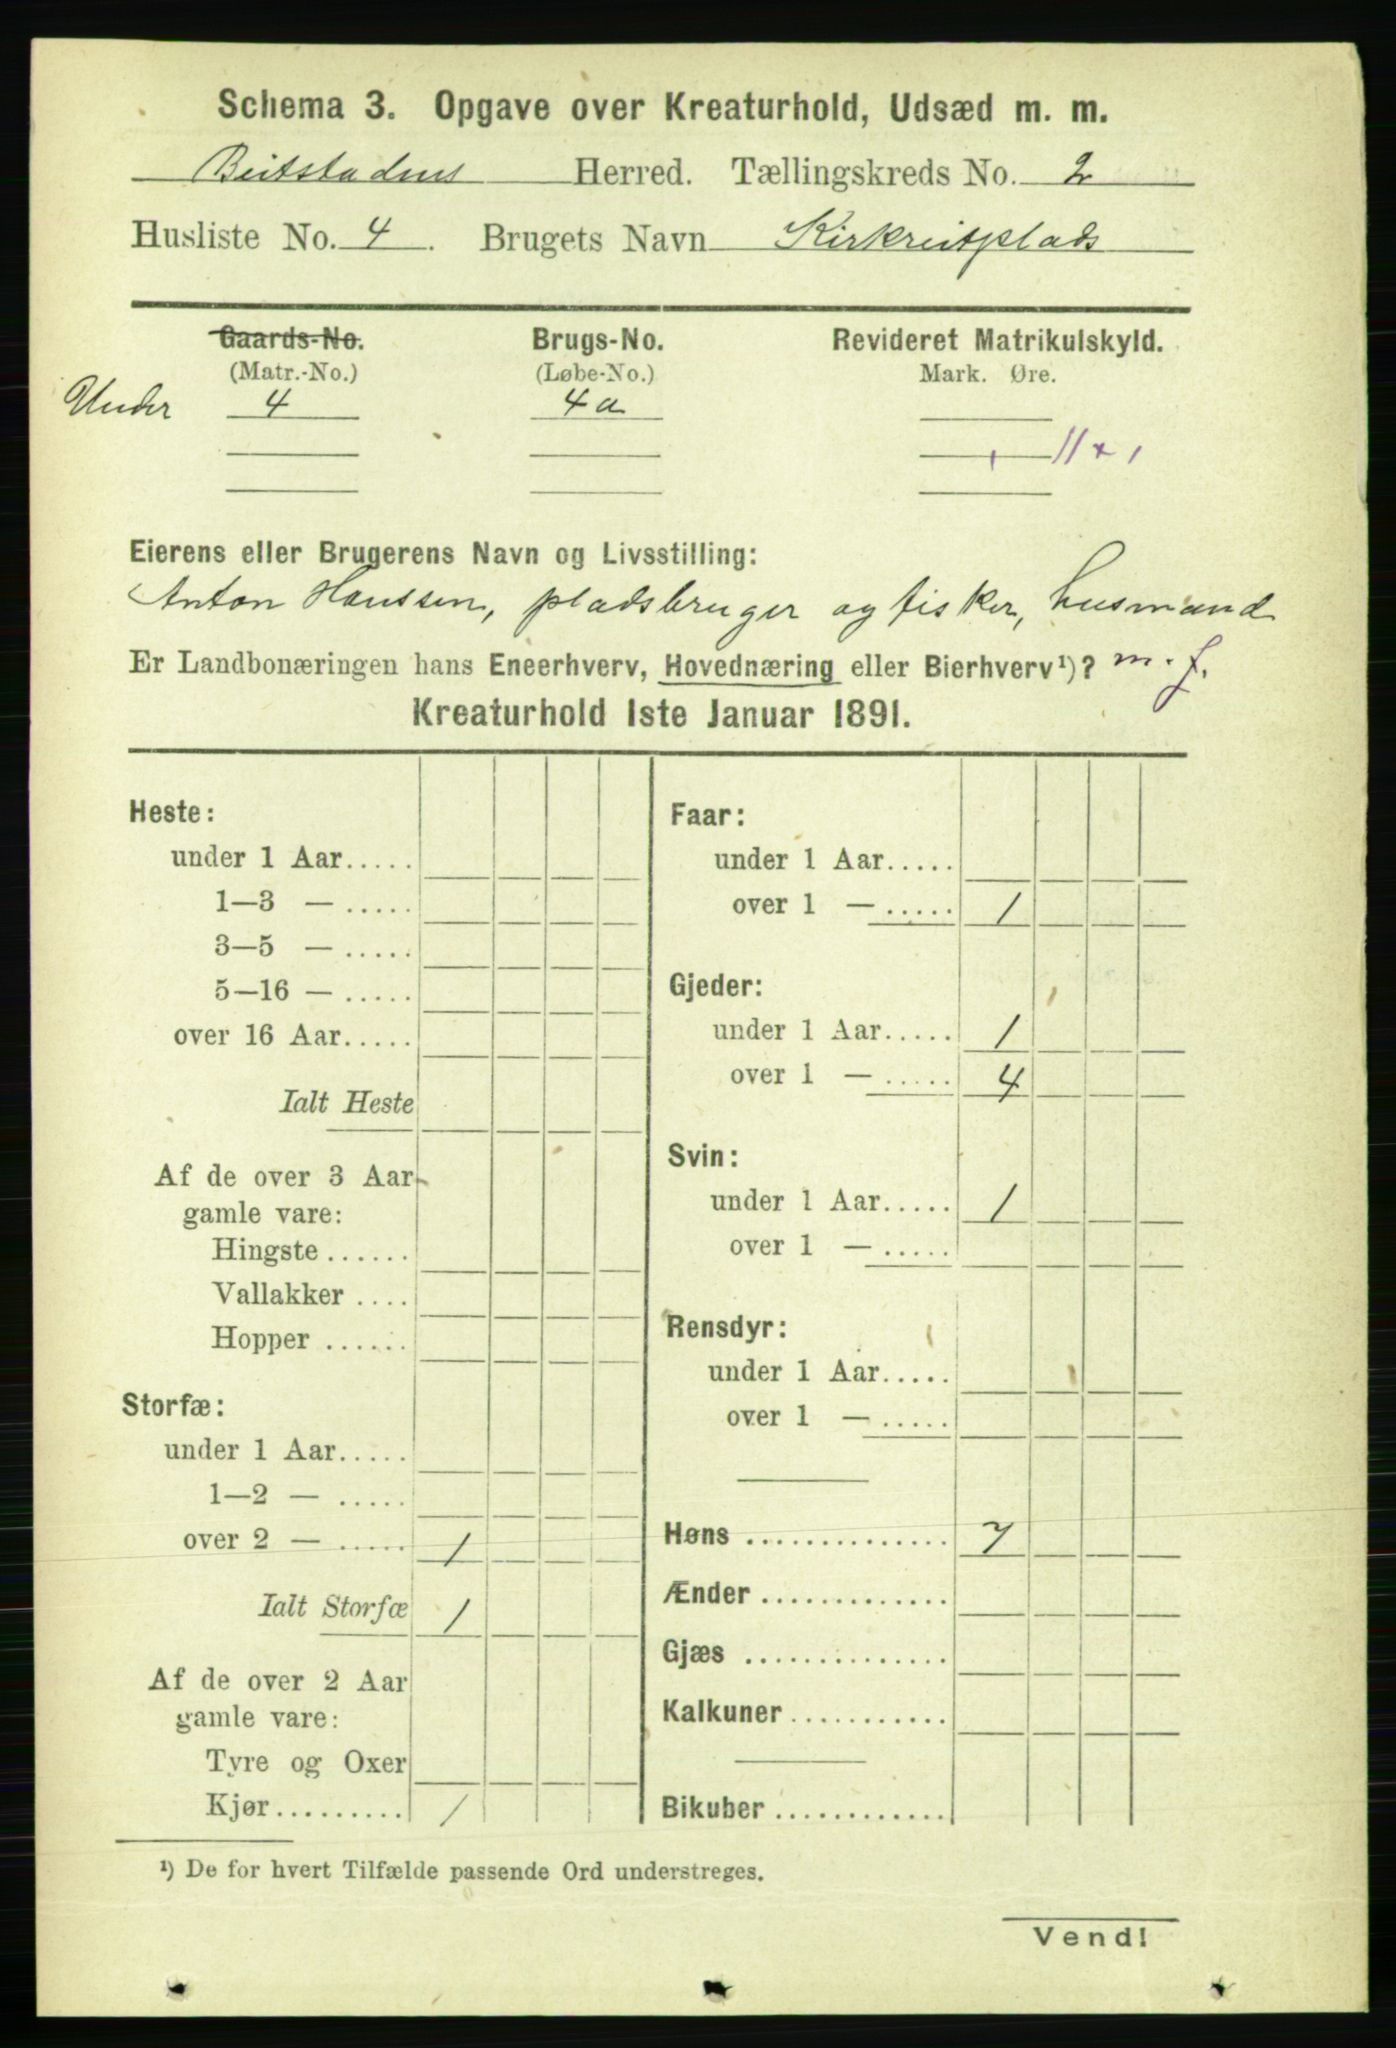 Schema 3. Opgave over Kreaturhold, Udsæd m. m.
Beitstadens Herred. Tællingskreds No. 2
Husliste No. 4. Brugets Navn Kirkreitplads
Gaards-No. Brugs-No. Revideret Matrikulskyld.
(Matr.-No.) (Løbe-No.) Mark. Øre.
Under 4 4a
Eierens eller Brugerens Navn og Livsstilling:
Anton Hanssen, pladsbruger og fisker, husmand
Er Landbonæringen hans Eneerhverv, Hovednæring eller Bierhverv¹)? m. f.
Kreaturhold 1ste Januar 1891.
Heste:
under 1 Aar.....
1—3 — .....
3—5 — .....
5—16 — .....
over 16 Aar.....
Ialt Heste
Af de over 3 Aar
gamle vare:
Hingste ......
Vallakker ....
Hopper ......
Storfæ:
under 1 Aar.....
1—2 — .....
over 2 — ..... 1
Ialt Storfæ 1
Af de over 2 Aar
gamle vare:
Tyre og Oxer
Kjør......... 1
Faar:
under 1 Aar.....
over 1 — ..... 1
Gjeder:
under 1 Aar..... 1
over 1 — ..... 4
Svin:
under 1 Aar..... 1
over 1 — .....
Rensdyr:
under 1 Aar.....
over 1 — .....
Høns .............. 7
Ænder .............
Gjæs ..............
Kalkuner...........
Bikuber ............
¹) De for hvert Tilfælde passende Ord understreges.
Vend!